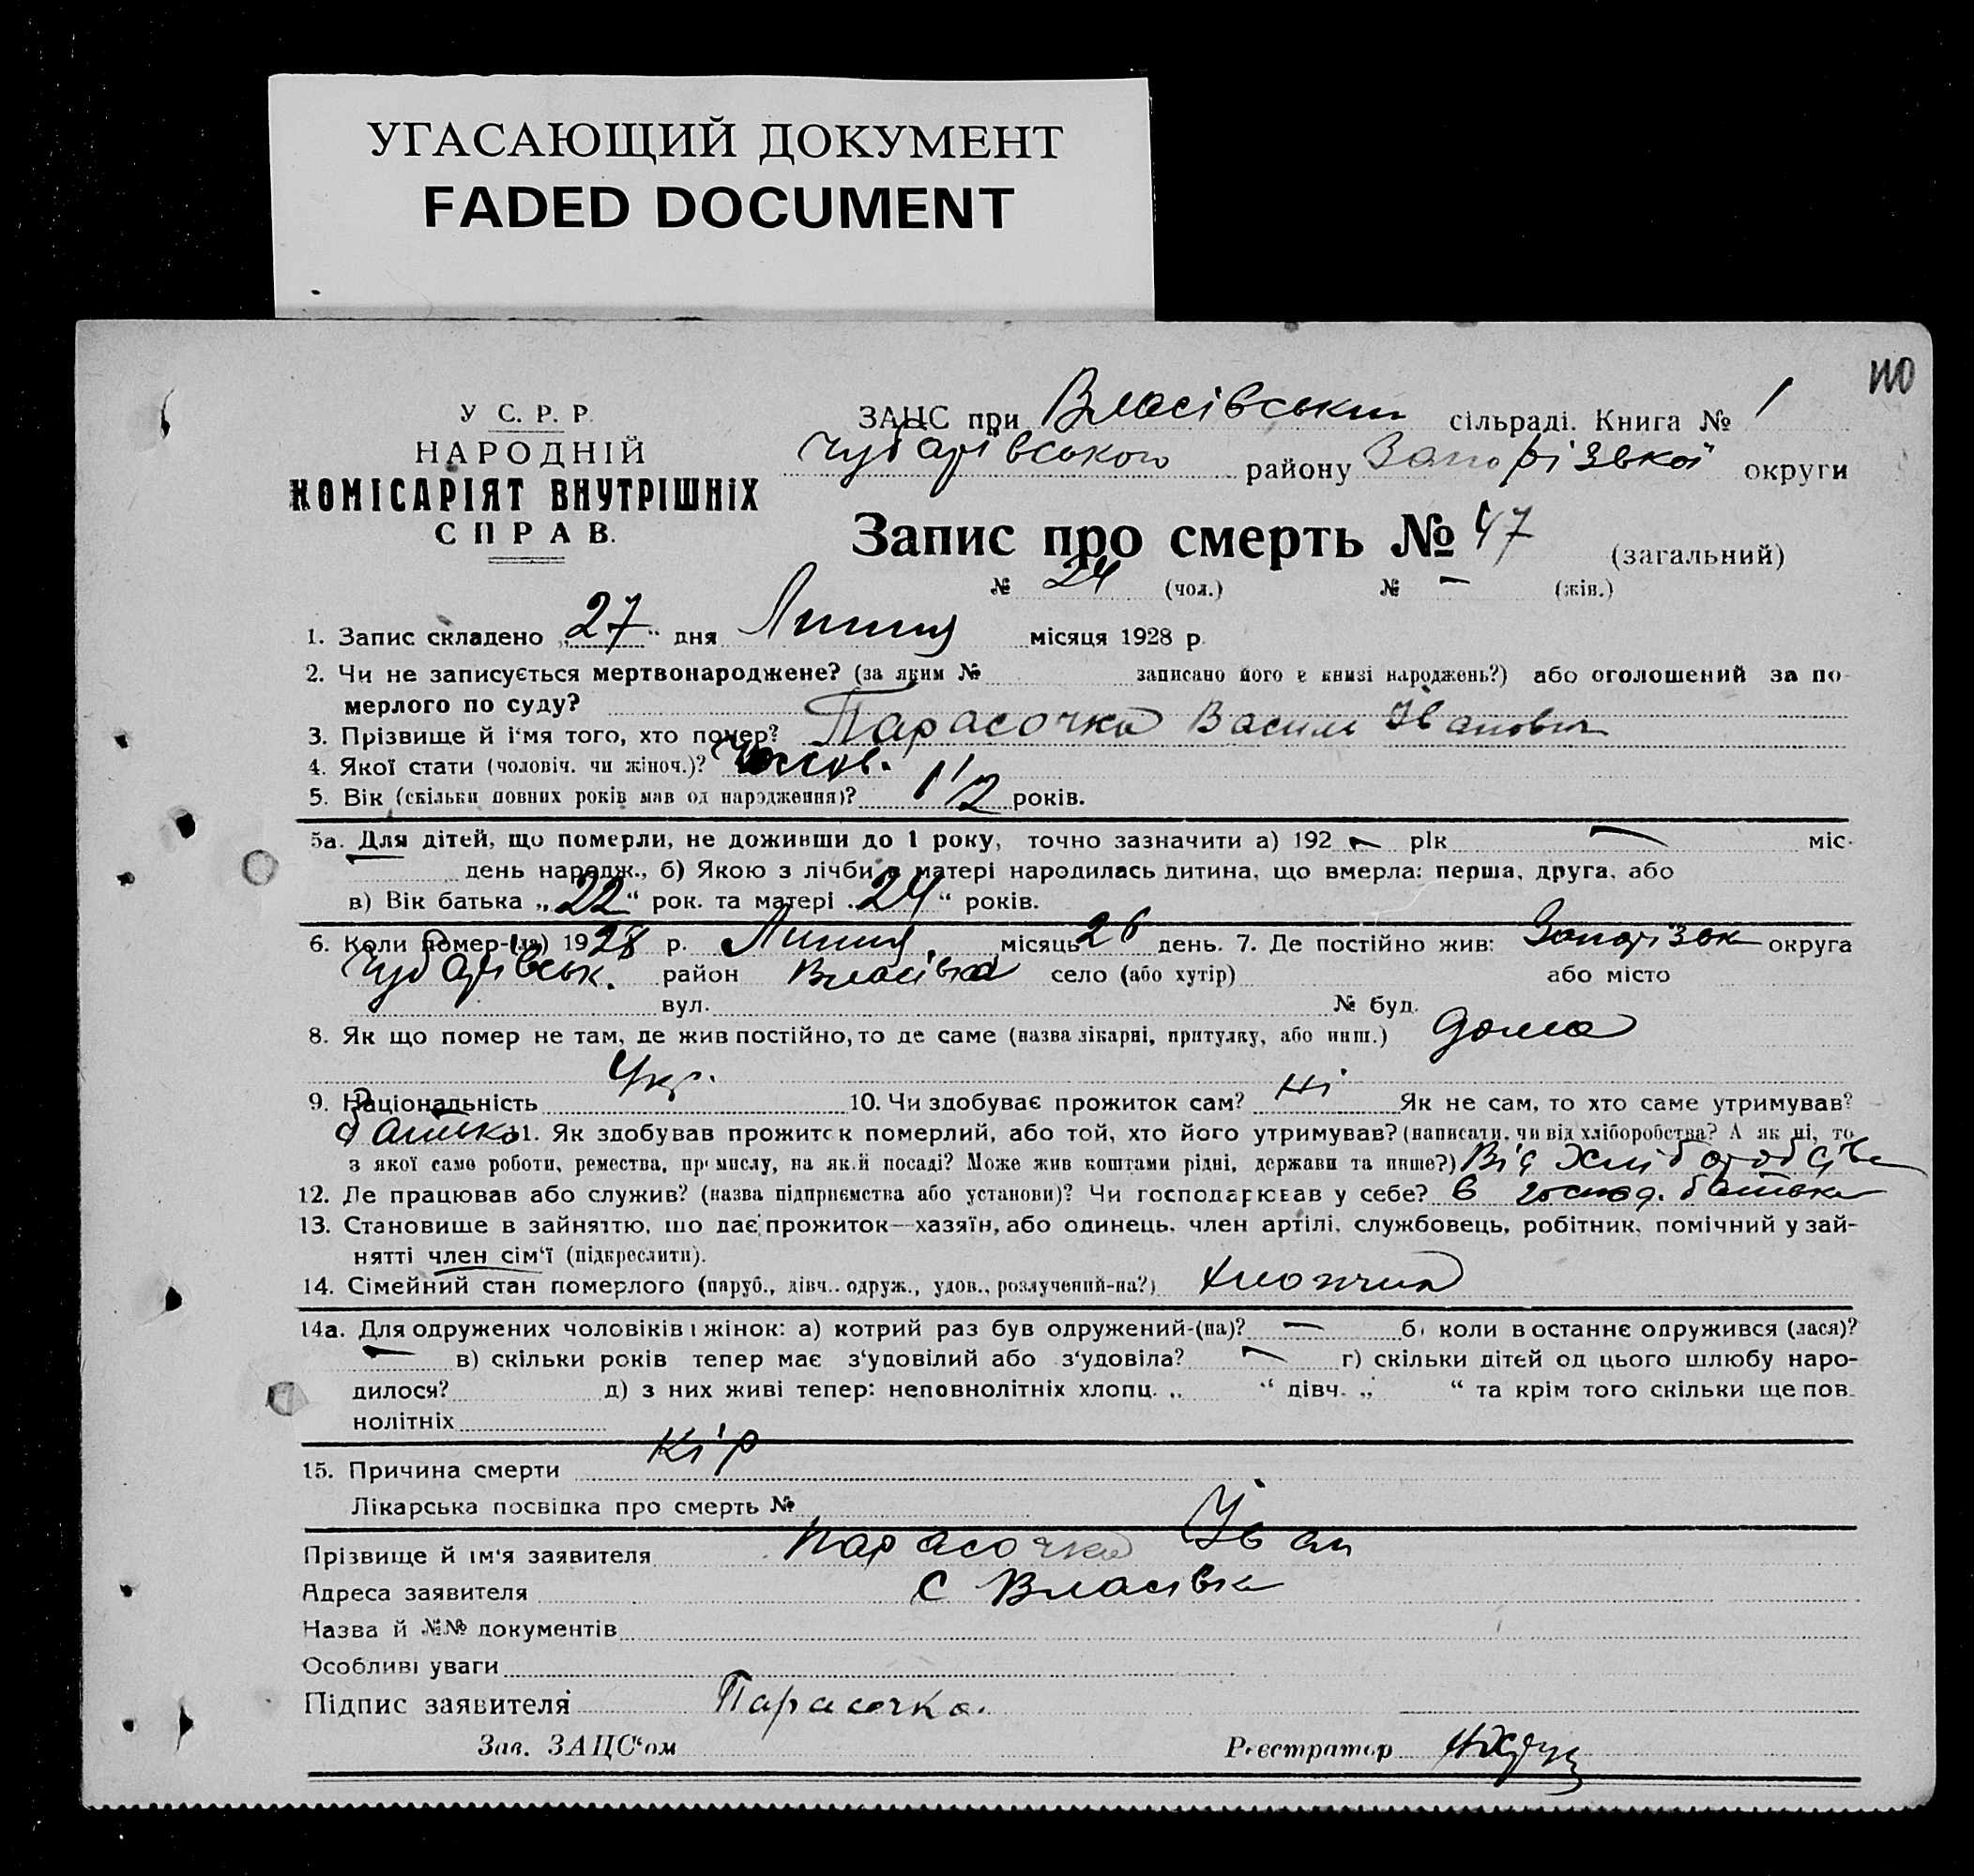 УГАСАЮЩИЙ ДОКУМЕНТ
FADED DOCUMENT
110
У С. Р. Р.
НАРОДНІЙ
КОМІСАРІЯТ ВНУТРІШНІХ
СПРАВ.
ЗАЦС при Власівський сільраді. Книга № 1
Чубарівського району Запорізької округи
Запис про смерть № 47 (загальний)
№ 24 (чол.) № — (жін.)
1. Запис складено „27“ дня Липня місяця 1928 р.
2. Чи не записується мертвонароджене? (за яким № записано його в книзі народжень?) або оголошений за по-
мерлого по суду?
3. Прізвище й і'мя того, хто помер? Парасочка Василь Іванович
4. Якої стати (чоловіч. чи жіноч.)? Чолов.
5. Вік (скільки повних років мав од народження)? 1 1/2 років.
5а. Для дітей, що померли, не доживши до 1 року, точно зазначити а) 192 — рік — міс.
день народж., б) Якою з лічби в матері народилась дитина, що вмерла: перша, друга, або
в) Вік батька „22“ рок. та матері „24“ років.
6. Коли помер-(ла) 1928 р. Липня місяць 26 день. 7. Де постійно жив: Запорізьк округа
Чубарівськ. район Власівка село (або хутір) або місто
вул. № буд.
8. Як що помер не там, де жив постійно, то де саме (назва лікарні, притулку, або инш.) дома
9. Національність Укр. 10. Чи здобуває прожиток сам? Ні Як не сам, то хто саме утримував?
батько 11. Як здобував прожиток померлий, або той, хто його утримував? (написати, чи від хліборобства? А як ні, то
з якої саме роботи, ремества, промислу, на якій посаді? Може жив коштами рідні, держави та инше?) Від хліборобства
12. Де працював або служив? (назва підприємства або установи)? Чи господарював у себе? в господ. батька
13. Становище в зайняттю, що дає прожиток—хазяїн, або одинець, член артілі, службовець, робітник, помічний у зай-
нятті член сім'ї (підкреслити).
14. Сімейний стан померлого (паруб., дівч., одруж., удов., розлучений-на?) хлопчик
14а. Для одружених чоловіків і жінок: а) котрий раз був одружений-(на)? — б) коли в останнє одружився (лася)?
— в) скільки років тепер має з'удовілий або з'удовіла? — г) скільки дітей од цього шлюбу наро-
дилося? д) з них живі тепер: неповнолітніх хлопц. „ “ дівч. „ “ та крім того скільки ще пов-
нолітніх
15. Причина смерти Кір
Лікарська посвідка про смерть №
Прізвище й ім'я заявителя Парасочка Іван
Адреса заявителя с Власівка
Назва й №№ документів
Особливі уваги
Підпис заявителя Парасочка.
Зав. ЗАЦС'ом Реєстратор